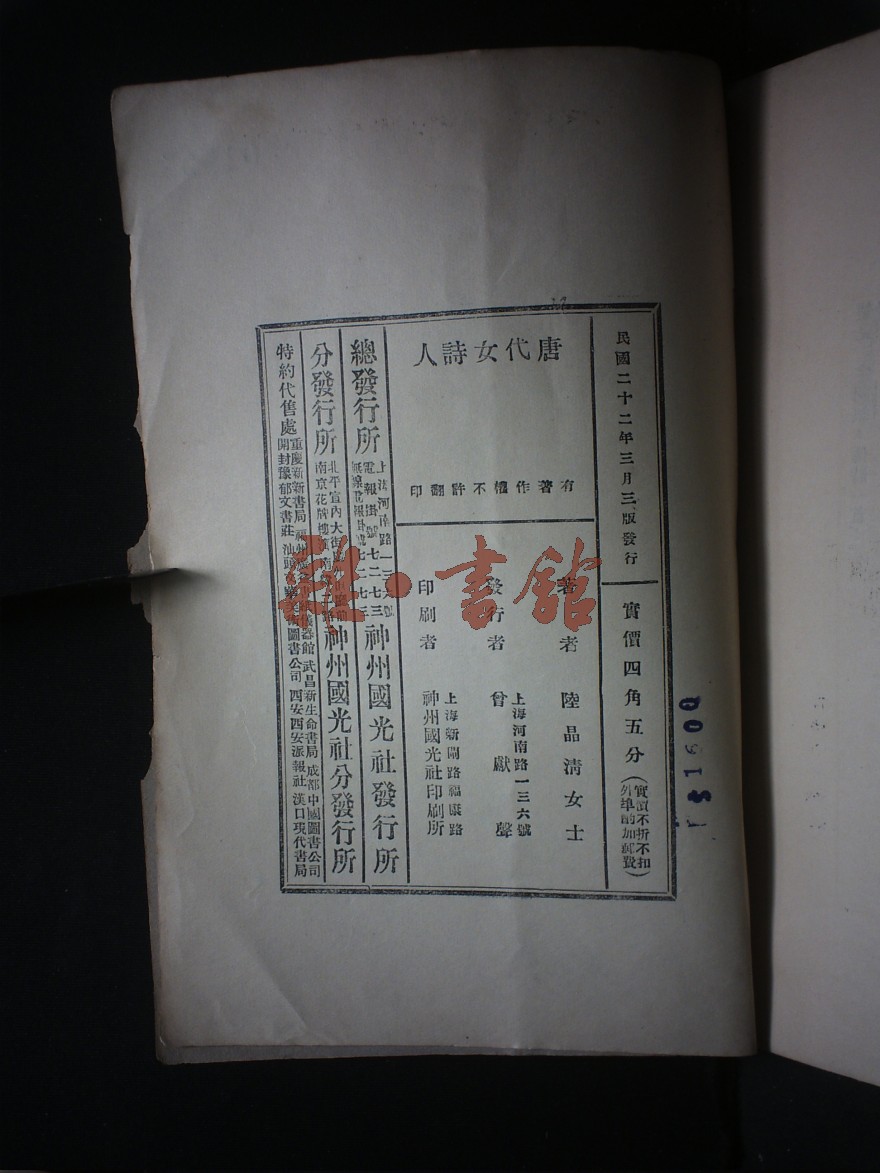 民國二十二年三月三版發行
實價四角五分
(實價不折不扣
外埠酌加郵費)
唐代女詩人
有著作權不許翻印
著者 陸晶清女士
發行者 曾獻聲
上海河南路一三六號
印刷者 神州國光社印刷所
上海新閘路福康路
總發行所
上海河南路一三六號
電報掛號七二七三
無線電報掛號七二七三
神州國光社發行所
分發行所
北平宣內大街
南京花牌樓
神州國光社分發行所
特約代售處
重慶新新書局
武昌新生命書局 成都中國圖書公司
開封豫郁文書莊 汕頭
圖書公司 西安西安派報社 漢口現代書局
書館